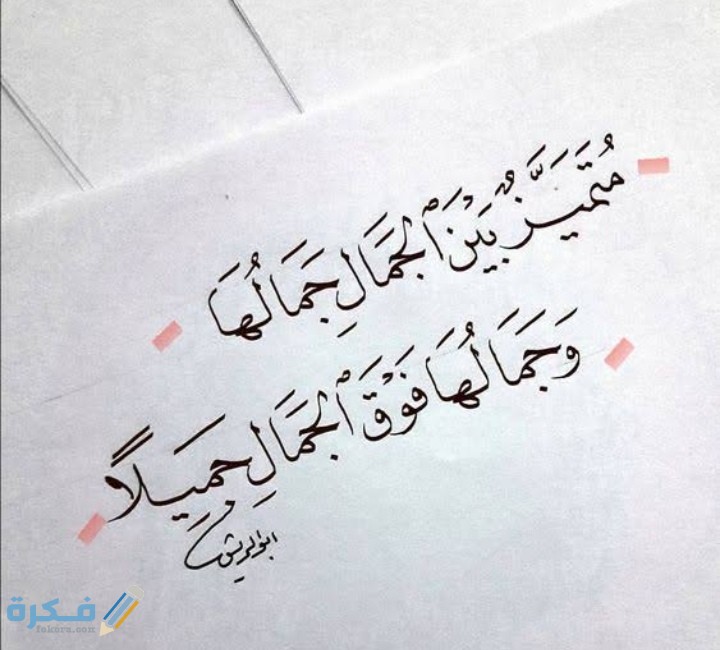 مُتَمَيَّزٌ بَيْنَ ٱلجَمَالِ جَمَالُهَا
وَجَمَالُهَا فَوْقَ ٱلجَمَالِ جَمِيلًا
فكرة
fekera.com